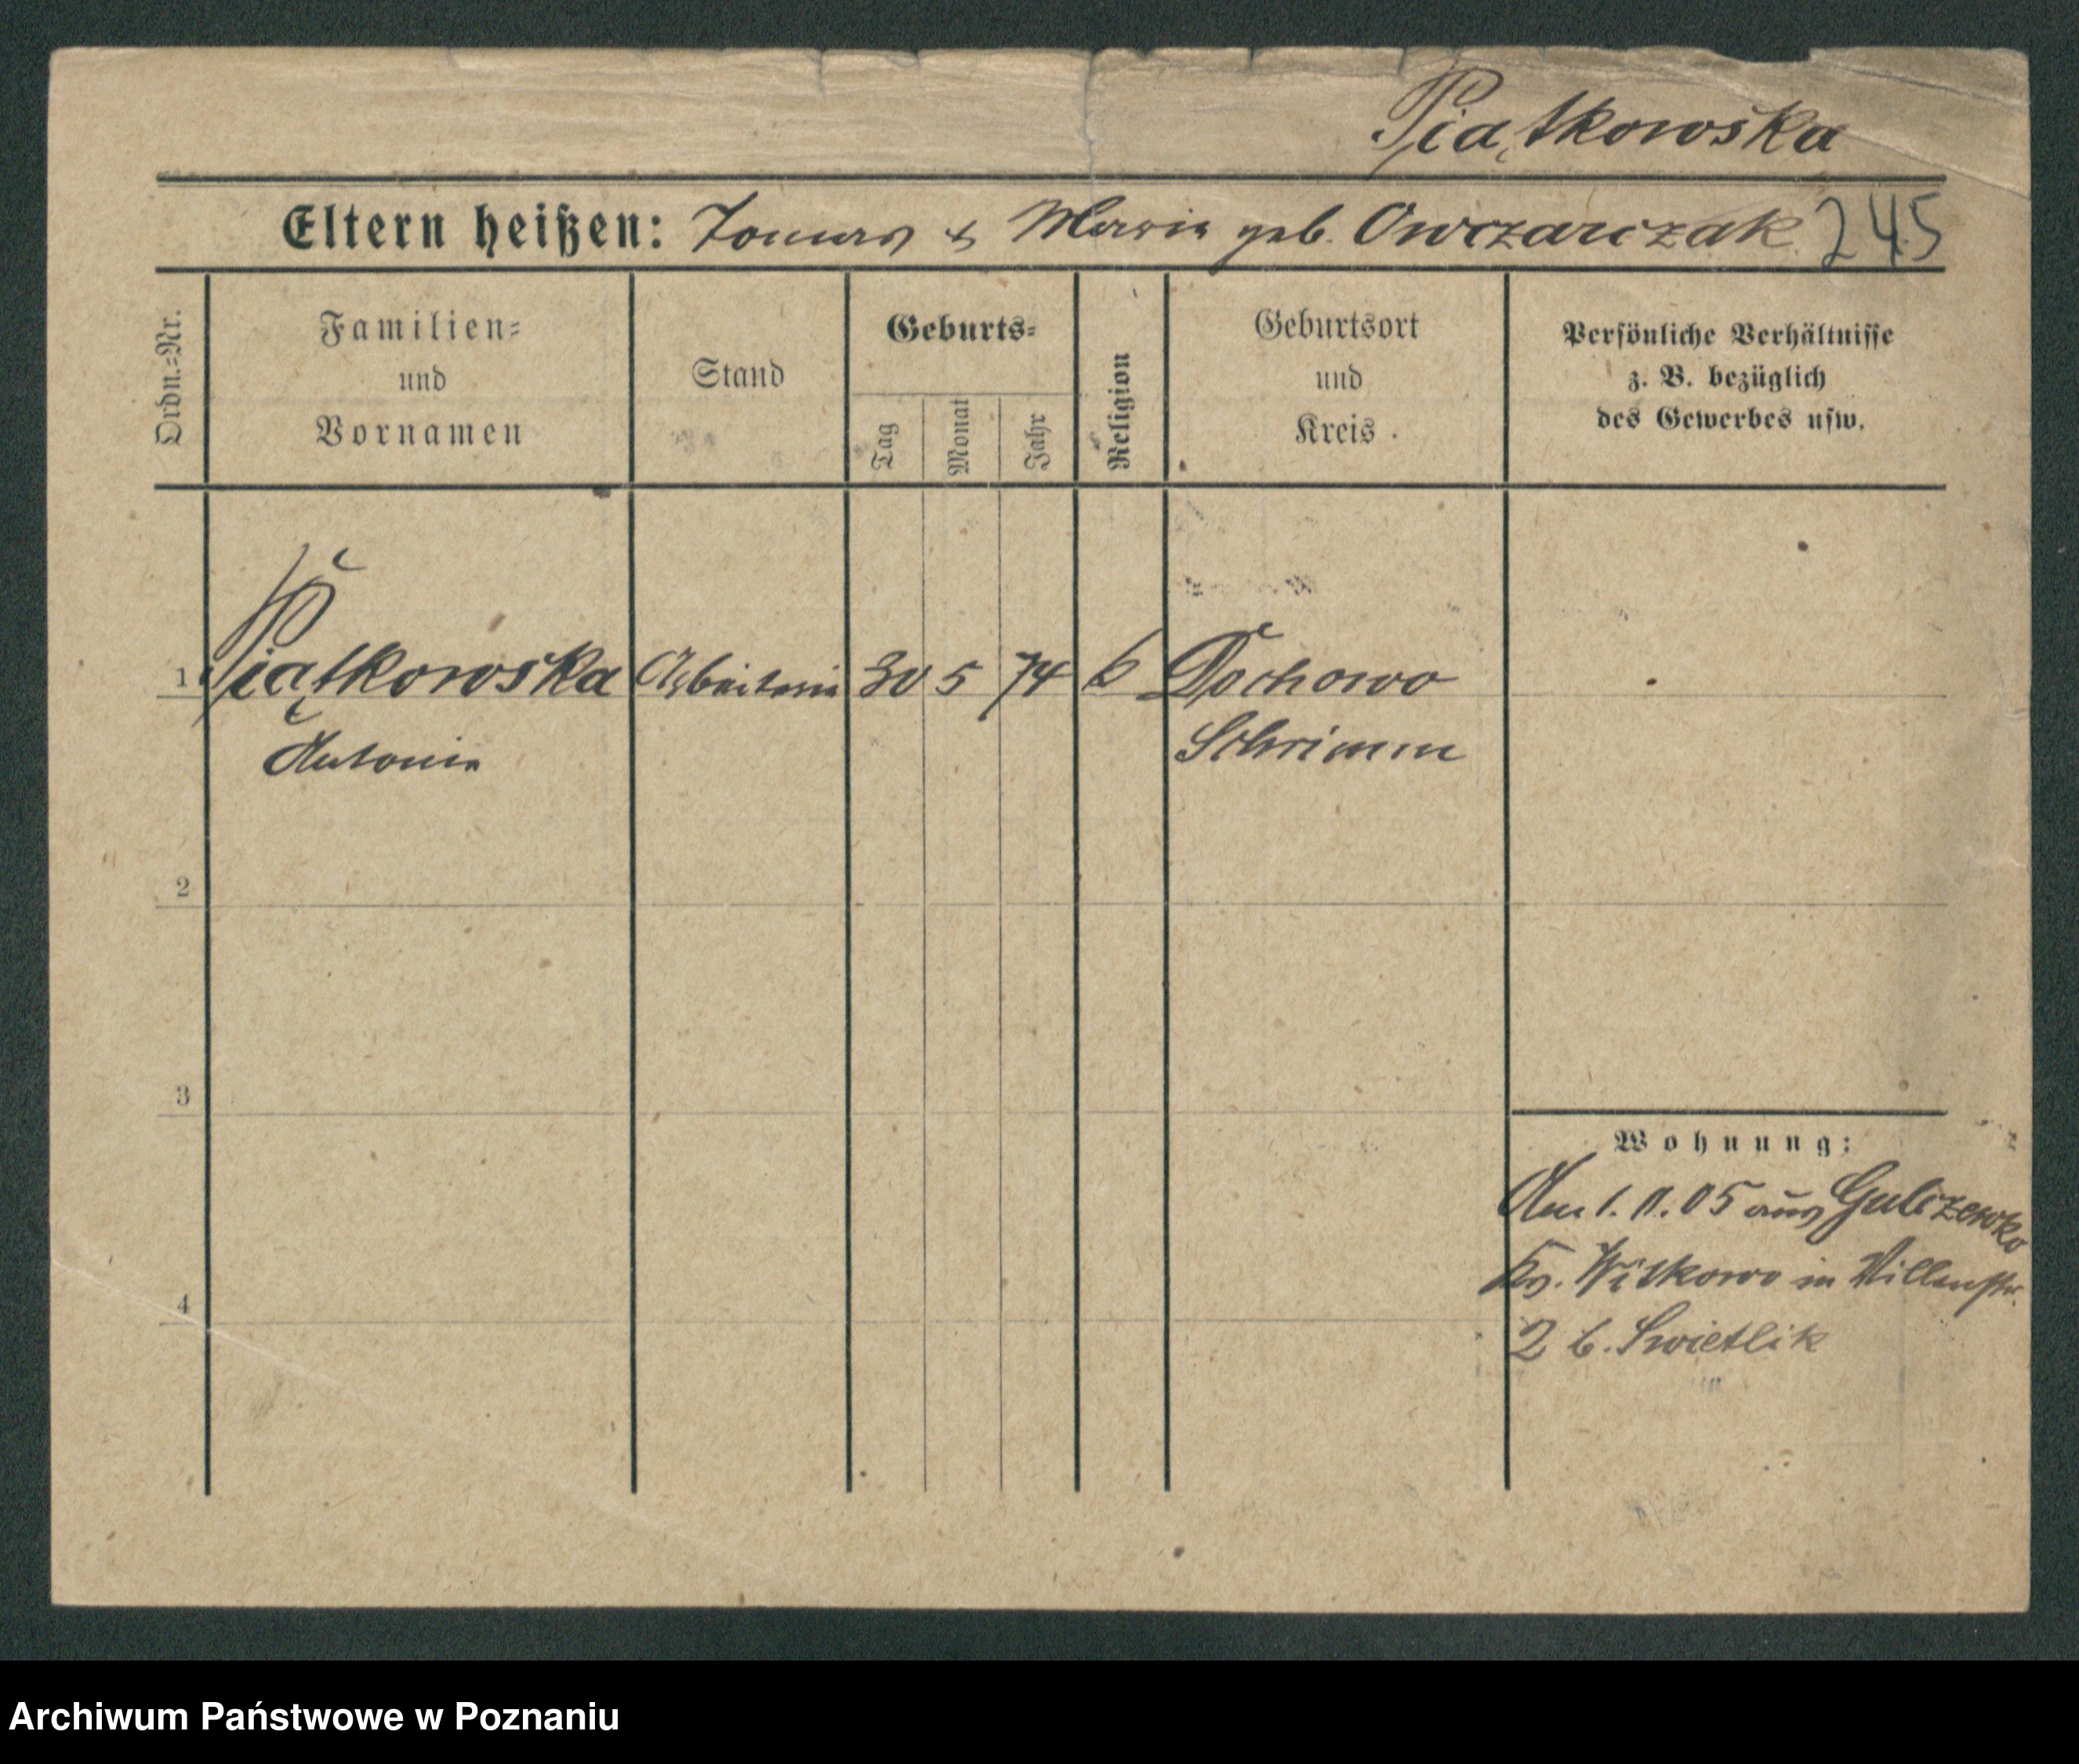 Piątkowska
Eltern heißen: Tomas & Maria geb. Owczarczak 245
Ordn.=Nr.
Familien=
und
Vornamen
Stand
Geburts=
Tag
Monat
Jahr
Religion
Geburtsort
und
Kreis
Persönliche Verhältnisse
z. B. bezüglich
des Gewerbes usw.
1 Piątkowska Arbeiterin 30 5 74 Dochowo
Antonia Schrimm
2
3
Wohnung:
Am 1. 11. 05 aus Gulczewko
Kr. Witkowo in Villenstr.
4
2 b. Swietlik
Archiwum Państwowe w Poznaniu